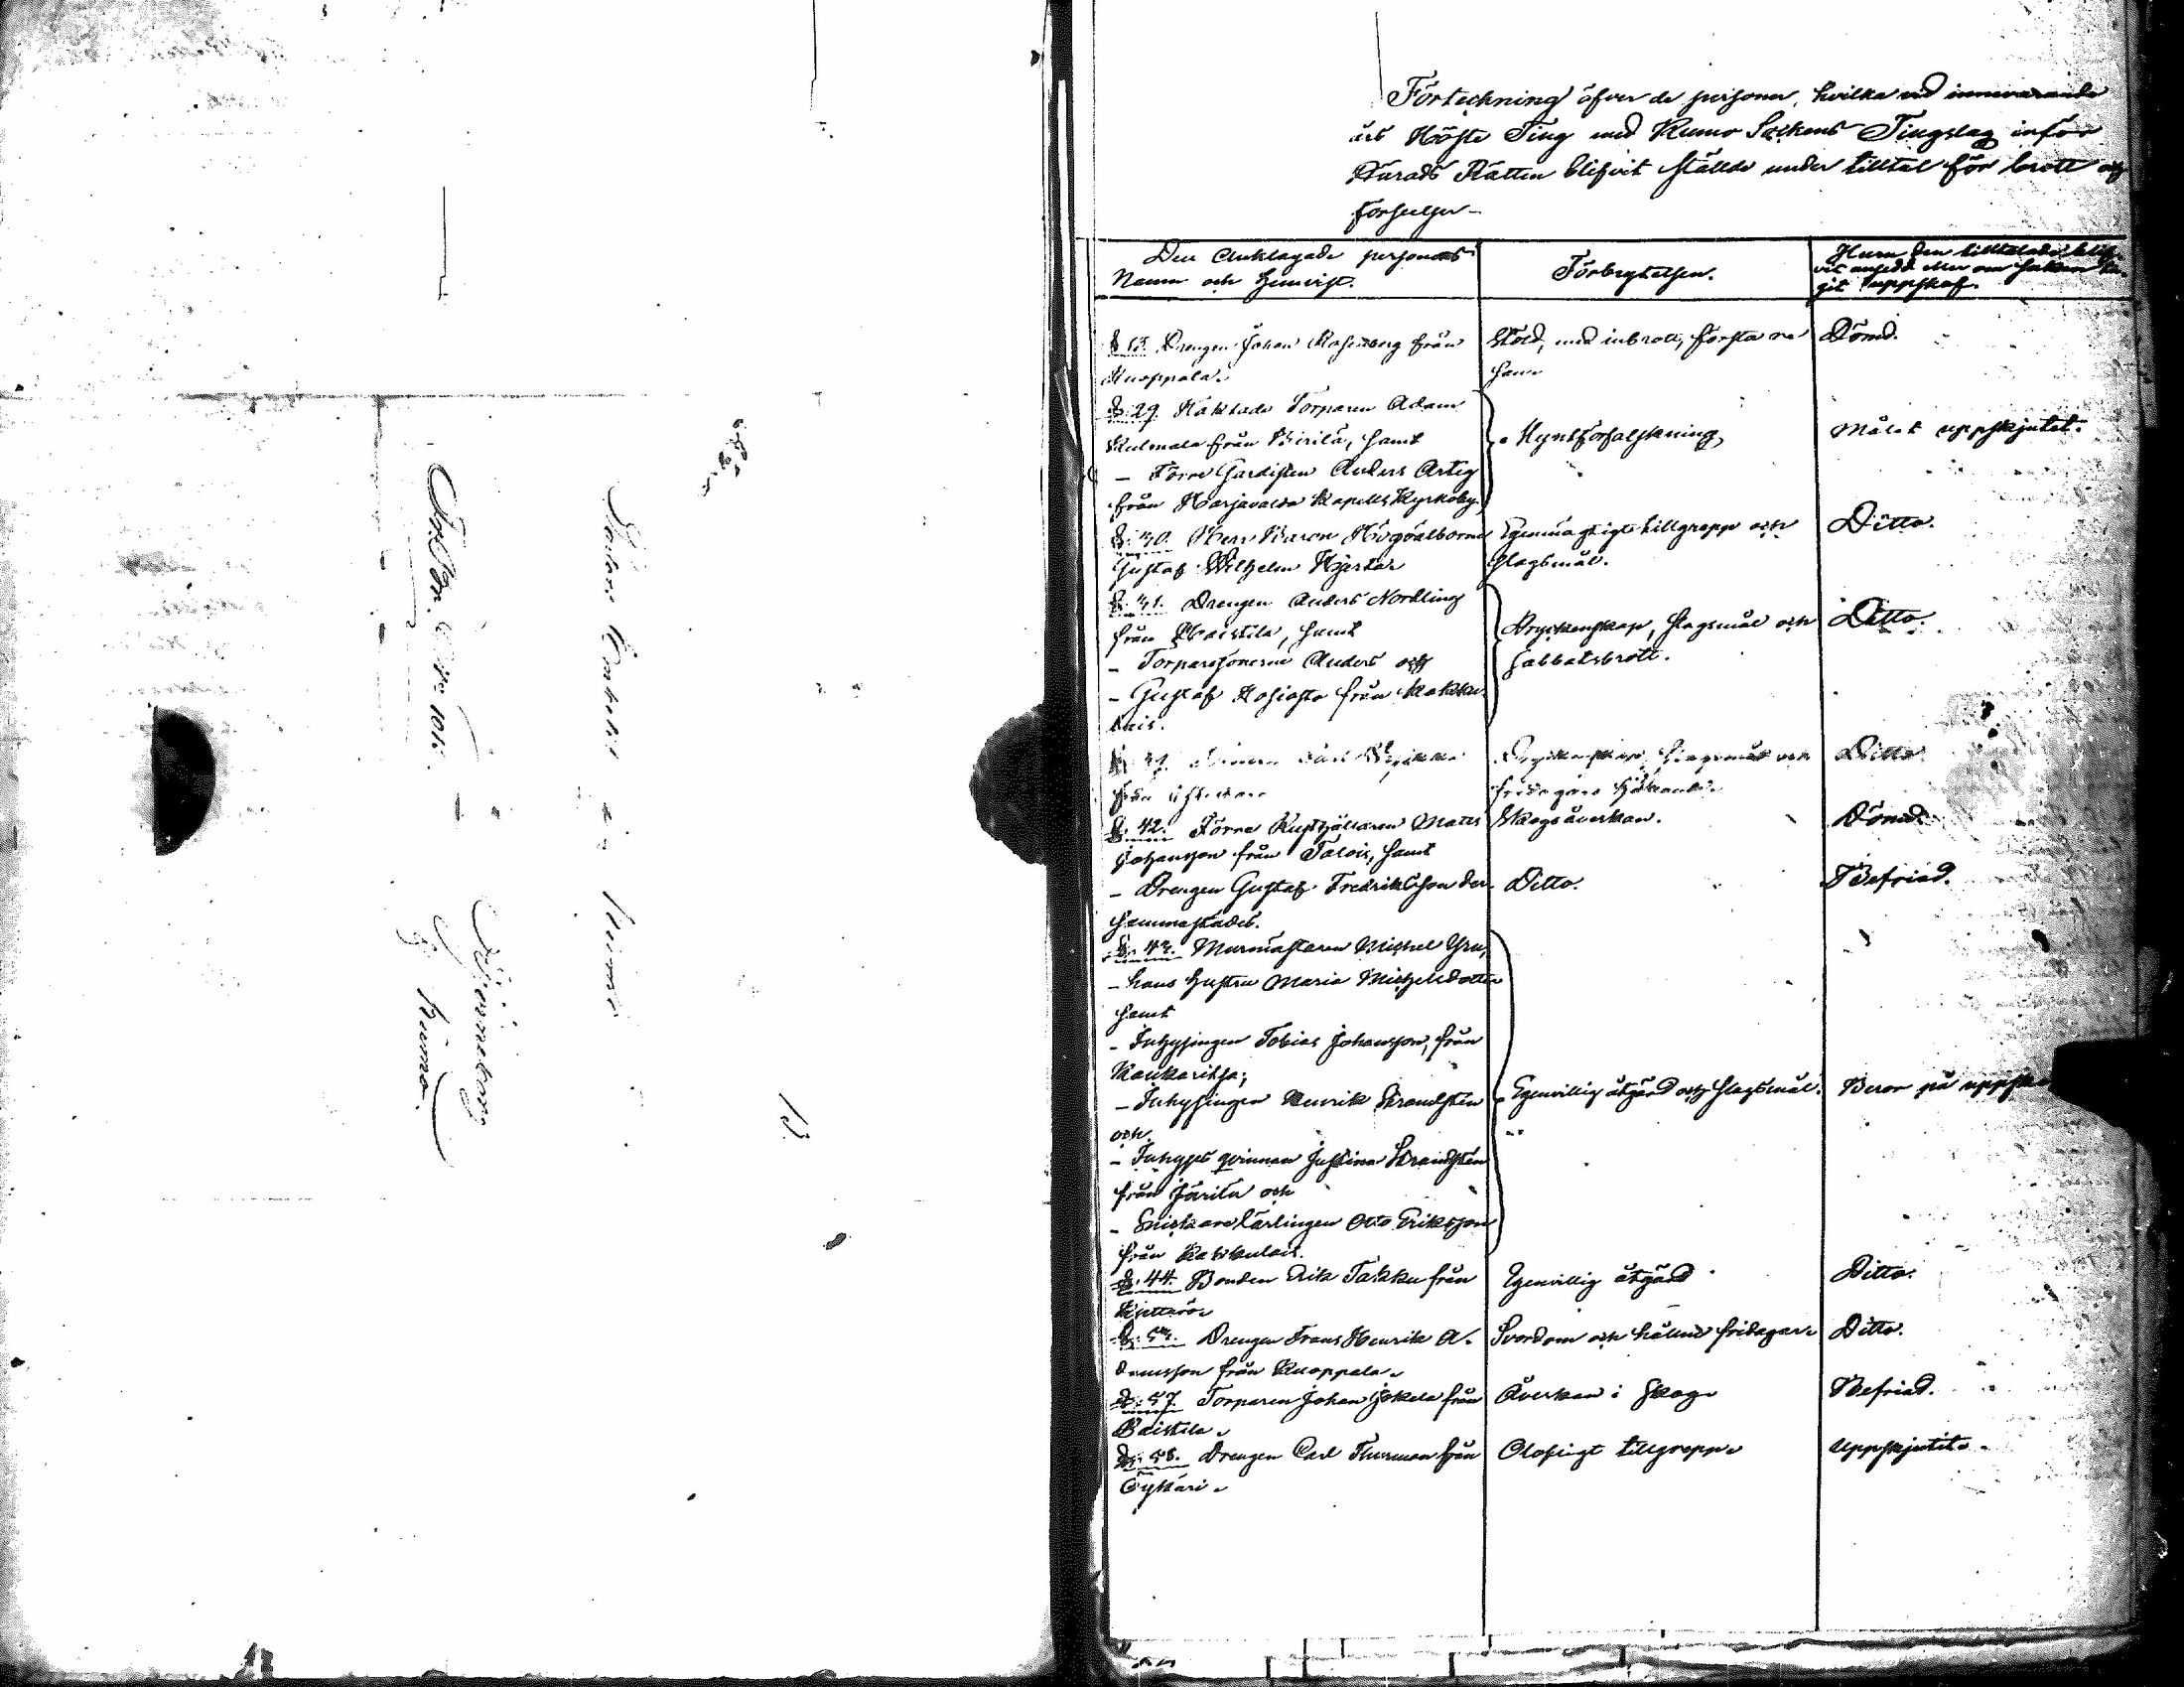 Förteckning öfver de personer, hvilka vid innevarande
års Höste Ting med Kumo Sockens Tingslag inför
Härads Rätten blifvit ställde under tilltal för brott och
förseelser.
Den Anklagade personens
Namn och hemvist.
Förbrytelsen.
Huru den tilltalade blif-
vit ansedd eller om saken ta-
git uppskof.
§ 13. Drengen Johan Rosenberg från
Kuoppala.
Stöld, med inbrott, första re-
san.
Dömd.
§ 29. Häktade Torparen Adam
Kulmala från Pirilä, samt
- Förre Gardisten Anders Artig
från Harjavalda Kapells Kyrkoby.
Myntförfalskning
Målet uppskjutet.
§ 40. Herr Baron Högvälborne
Gustaf Wilhelm Hjerta
Egenmägtigt tillgrepp och
slagsmål.
Ditto.
§ 41. Drengen Anders Nordling
från Paistila, samt
- Torparesönerne Anders och
- Gustaf från Kakku-
lais.
Dryckenskap, slagsmål och
sabbatsbrott.
Ditto.
från
Dryckenskap, slagsmål och
Ditto.
§ 42. Förre Rusthållaren Matts
Johansson från Talois, samt
Skogsåverkan.
Dömd.
- Drengen Gustaf Fredriksson der-
sammastädes.
Ditto.
Befriad.
§ 43. Murmästaren Michel
- hans hustru Maria Michelsdotter
samt
- Inhysingen Tobias Johansson, från
Kaukaritsa;
- Inhysingen Henrik Strandsten
och
- Inhyses qvinnan Justina Strandsten
från Järilä och
- Snickare lärlingen Otto Eriksson
från Kakkulais.
Egenvillig åtgärd och slagsmål.
Beror på
§ 44. Bonden Erik Takku från
Egenvillig åtgärd
Ditto.
§ 53. Drengen Frans Henrik A-
damsson från Kuoppala.
Svordom och fridagar.
Ditto.
§ 57. Torparen Johan Jokela från
Paistila.
Åverkan i skog.
Befriad.
§ 58. Drengen Carl Thurman från
Cykäri.
Olofligt tillgrepp.
Uppskjutit.
Björneborg
Kumo.